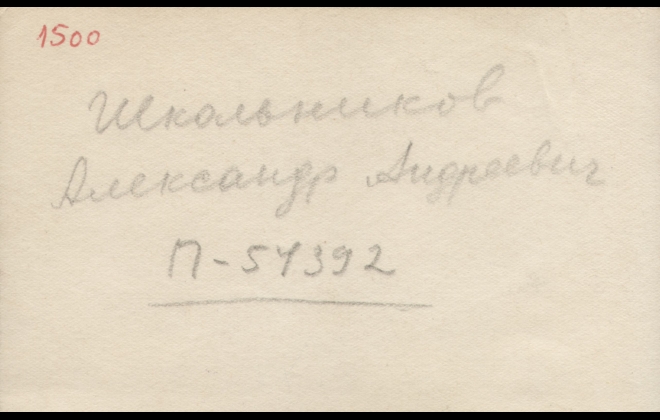 1500
Школьников
Александр Андреевич
П-54392